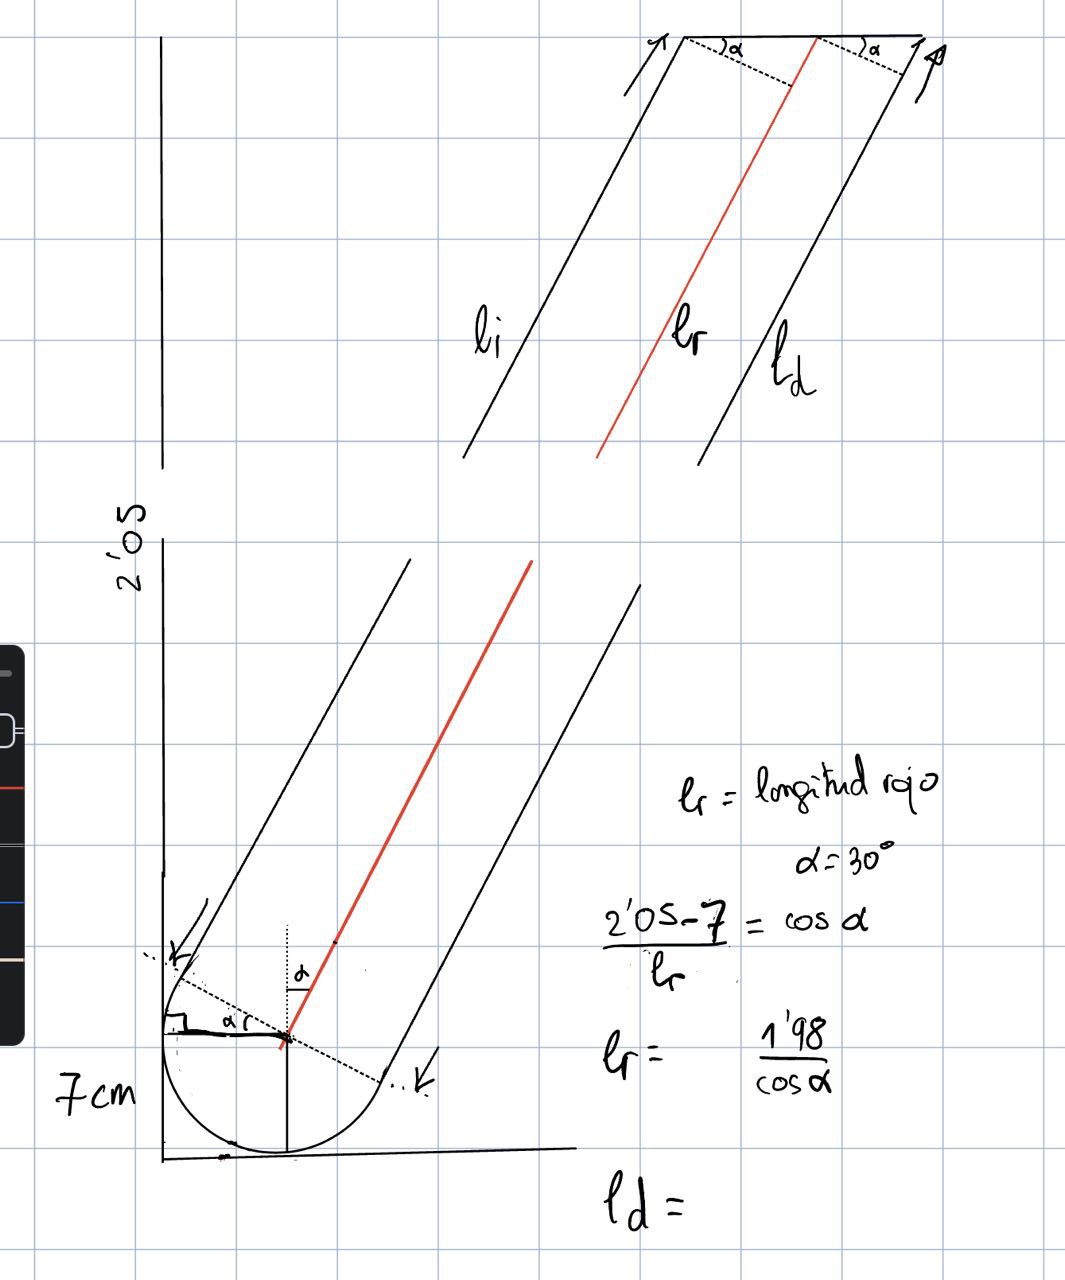 α
α
li
lr
ld
2'05
lr = longitud rojo
α = 30°
2'05-7 / lr = cos α
α
α r
lr = 1'98 / cos α
7 cm
ld =